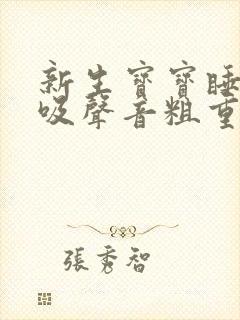 新生寶寶睡
吸聲音粗重
張秀智